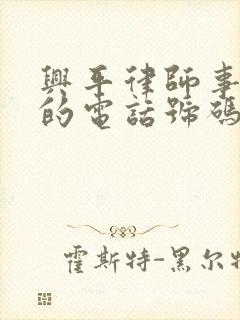 興平律師事
的電話號碼
霍斯特-黑尔特